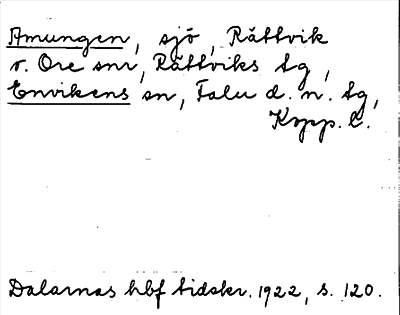 Amungen, sjö, Rättvik
o. Ore snr, Rättviks tg,
Envikens sn, Falu d. n. tg,
Kopp. l.
Dalarnas hbf tidskr. 1922, s. 120.